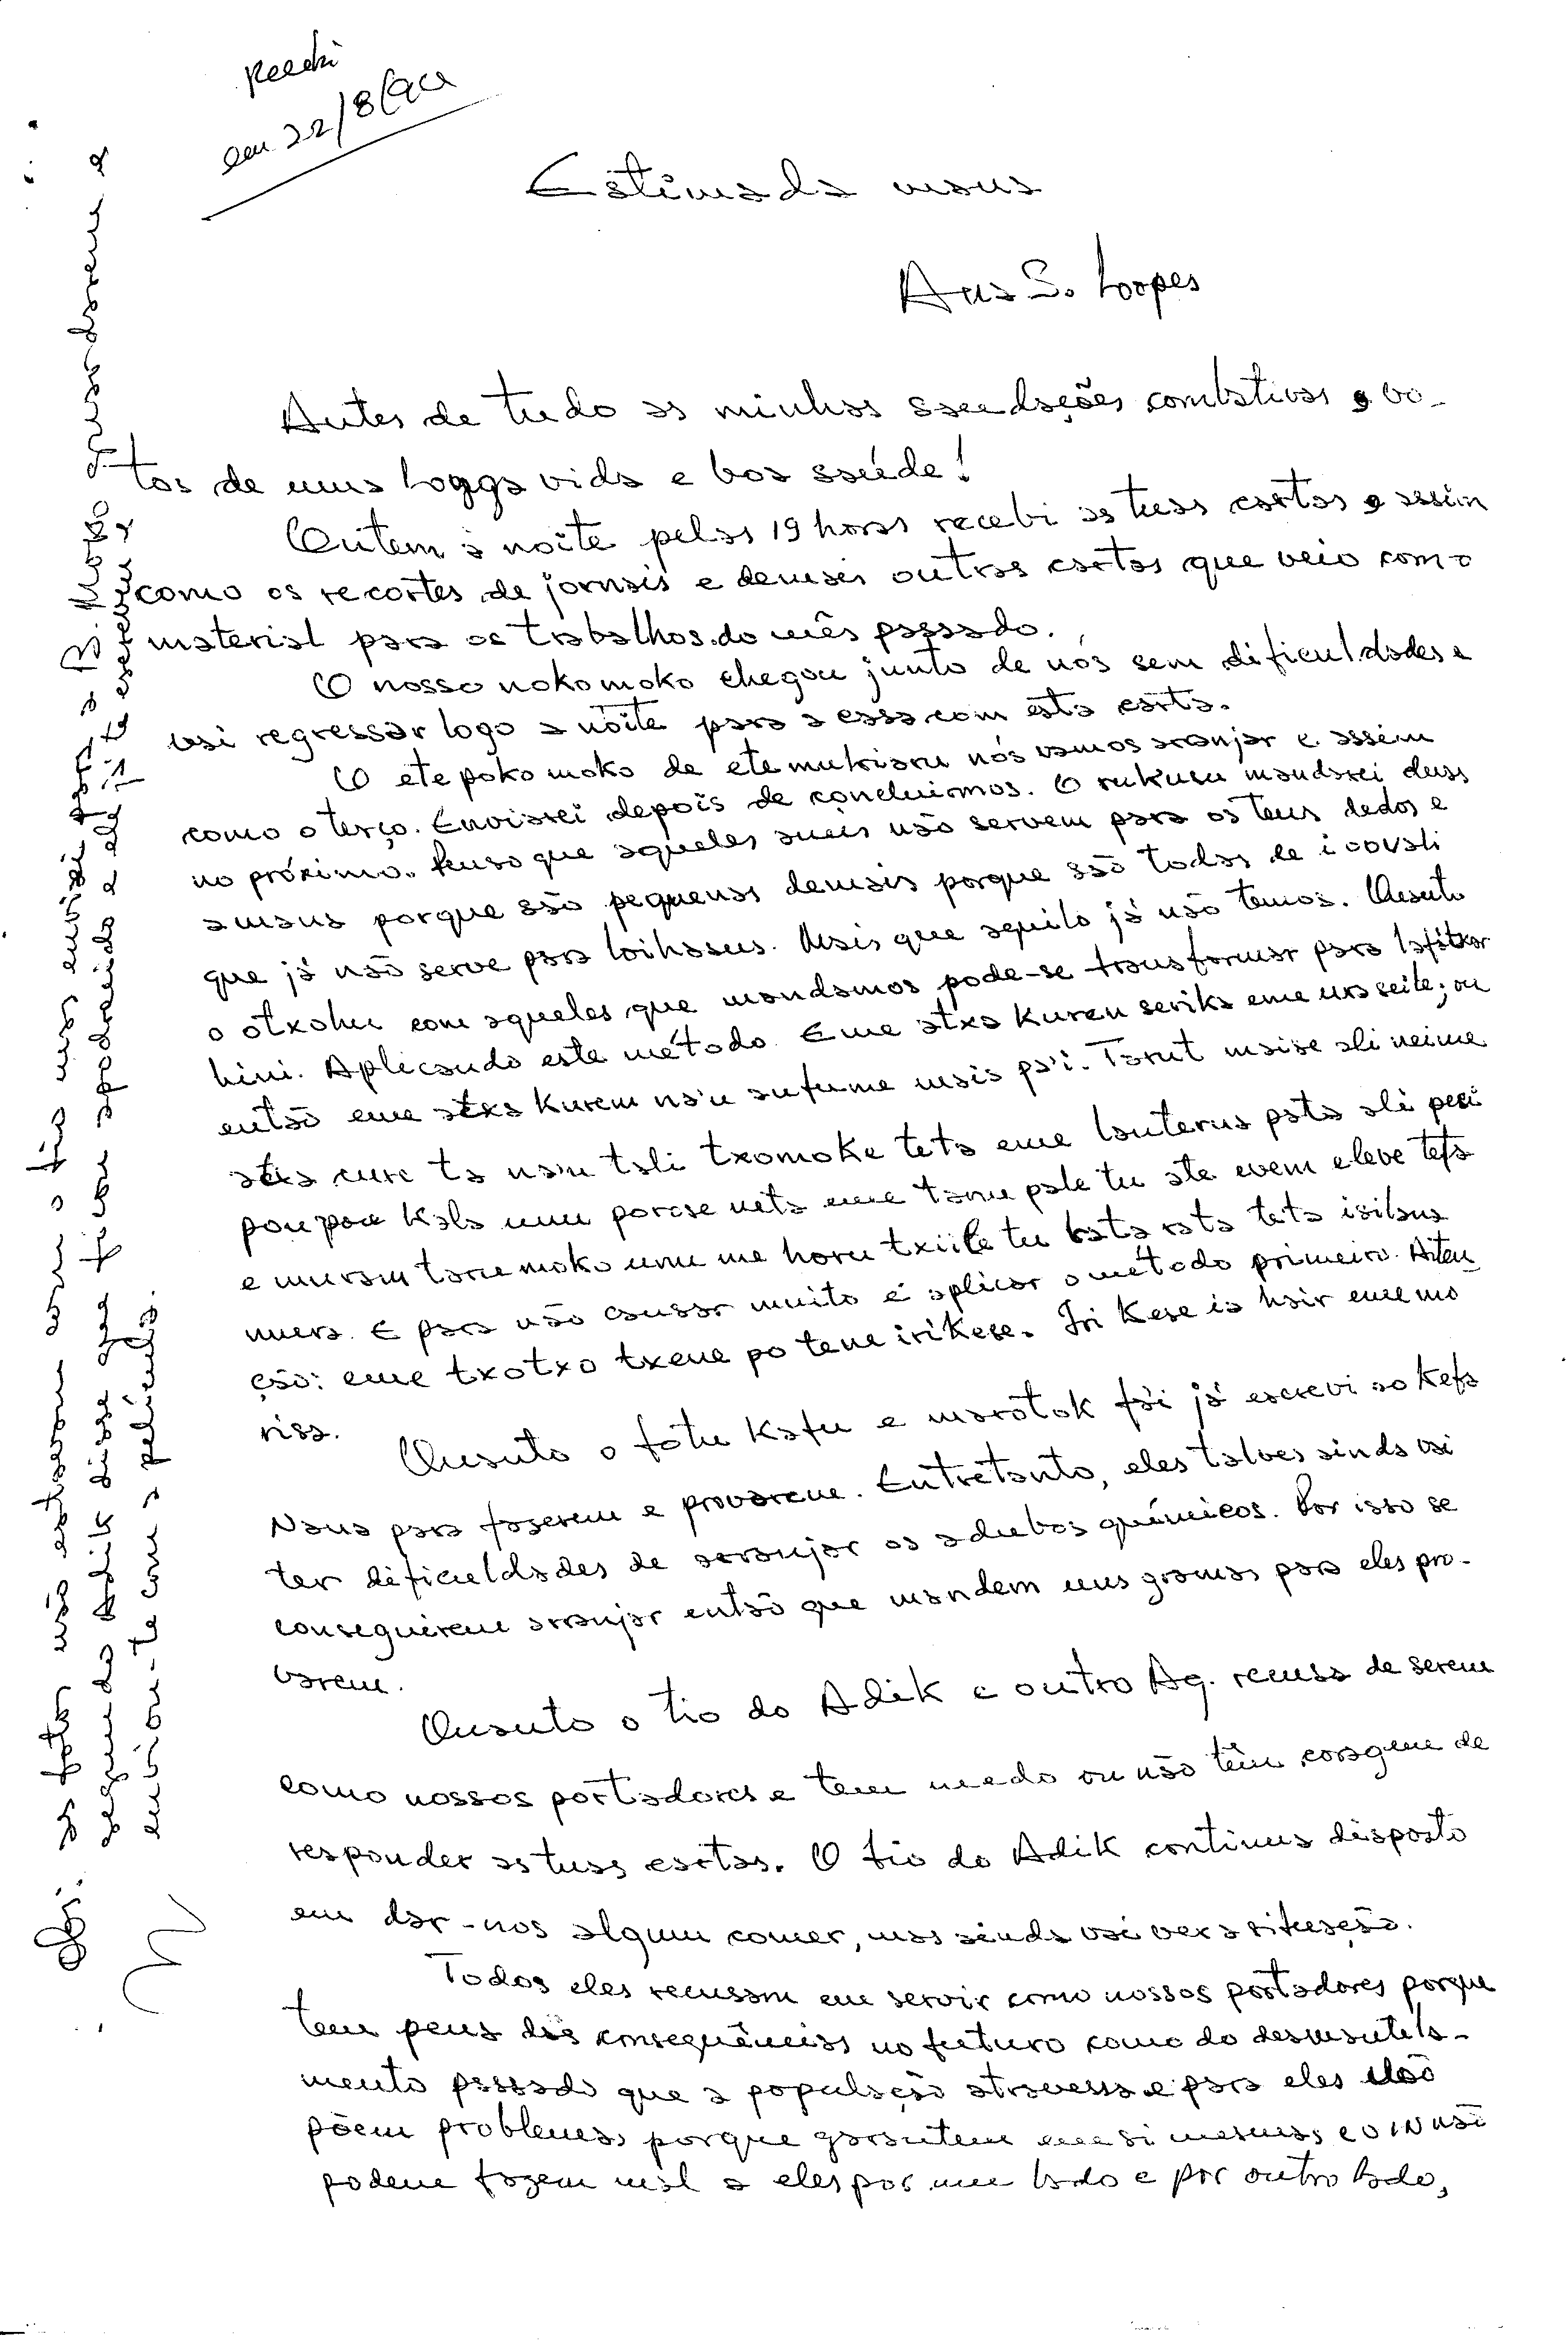 Recebi
em 22/8/94
Estimada mana
Ana S. Loopes
Antes de tudo as minhas saudações combativas e vo-
tos de uma longa vida e boa saúde!
Ontem à noite pelas 19 horas recebi as tuas cartas e assim
como os recortes de jornais e demais outras cartas que veio com o
material para os trabalhos do mês passado.
O nosso nokomoko chegou junto de nós sem dificuldades e
vai regressar logo a noite para a casa com esta carta.
O etepoko moko de etemukiaru nós vamos aranjar e assim
como o terço. Enviarei depois de concluirmos. O rukusu mandarei duas
no próximo. Penso que aqueles anéis não servem para os teus dedos e
a mana porque são pequenas demais porque são todas de ioovali
que já não serve para loihasus. Mais que aquilo já não temos. Quanto
o otxohu com aqueles que mandamos pode-se transformar para lafitxar
hini. Aplicando este método. Eme atxa kuren serika eme ura seile; ou
então eme atxa kurem na'u aufume mais pa'i. Tarut maise ali neime
atxa cure ta na'u tali txomoke teta eme lauterus pata ali peci
pou pou kala umu porcse neta eme tanu pale tu ate evem eleve tefa
e muram tarumoko umu me horu txiile tu bata rata teta isilana
muera. E para não causar muito é aplicar o método primeiro. Aten
ção: eme txotxo txeue po tene irikese. Iri kese ia hair eme mo
risa.
Quanto o fotu kafu e marotok fái já escrevi ao Kefa
Nana para fazerem e provarem. Entretanto, eles talves ainda vai
ter dificuldades de arranjar os adubos químicos. Por isso se
conseguirem arranjar então que mandem uns gramas para eles pro-
varem.
Quanto o tio do Adik e outro Aq. recusa de serem
como nossos portadores e tem medo ou não têm coragem de
responder as tuas cartas. O tio do Adik continua disposto
em dar-nos algum comer, mas ainda vai ver a situação.
Todos eles recusam em servir como nossos portadores porque
tem pena das consequências no futuro como do desmantela-
mento passado que a população atravessa e para eles não
põem problemas porque garantem em si mesmas e o IN não
podem fazem mal a eles por um lado e por outro lado,
Obs: as fotos não estavam com o tio mas enviei
segundo Adik disse que ficou apodrecido e ele
enviou-te com a película.